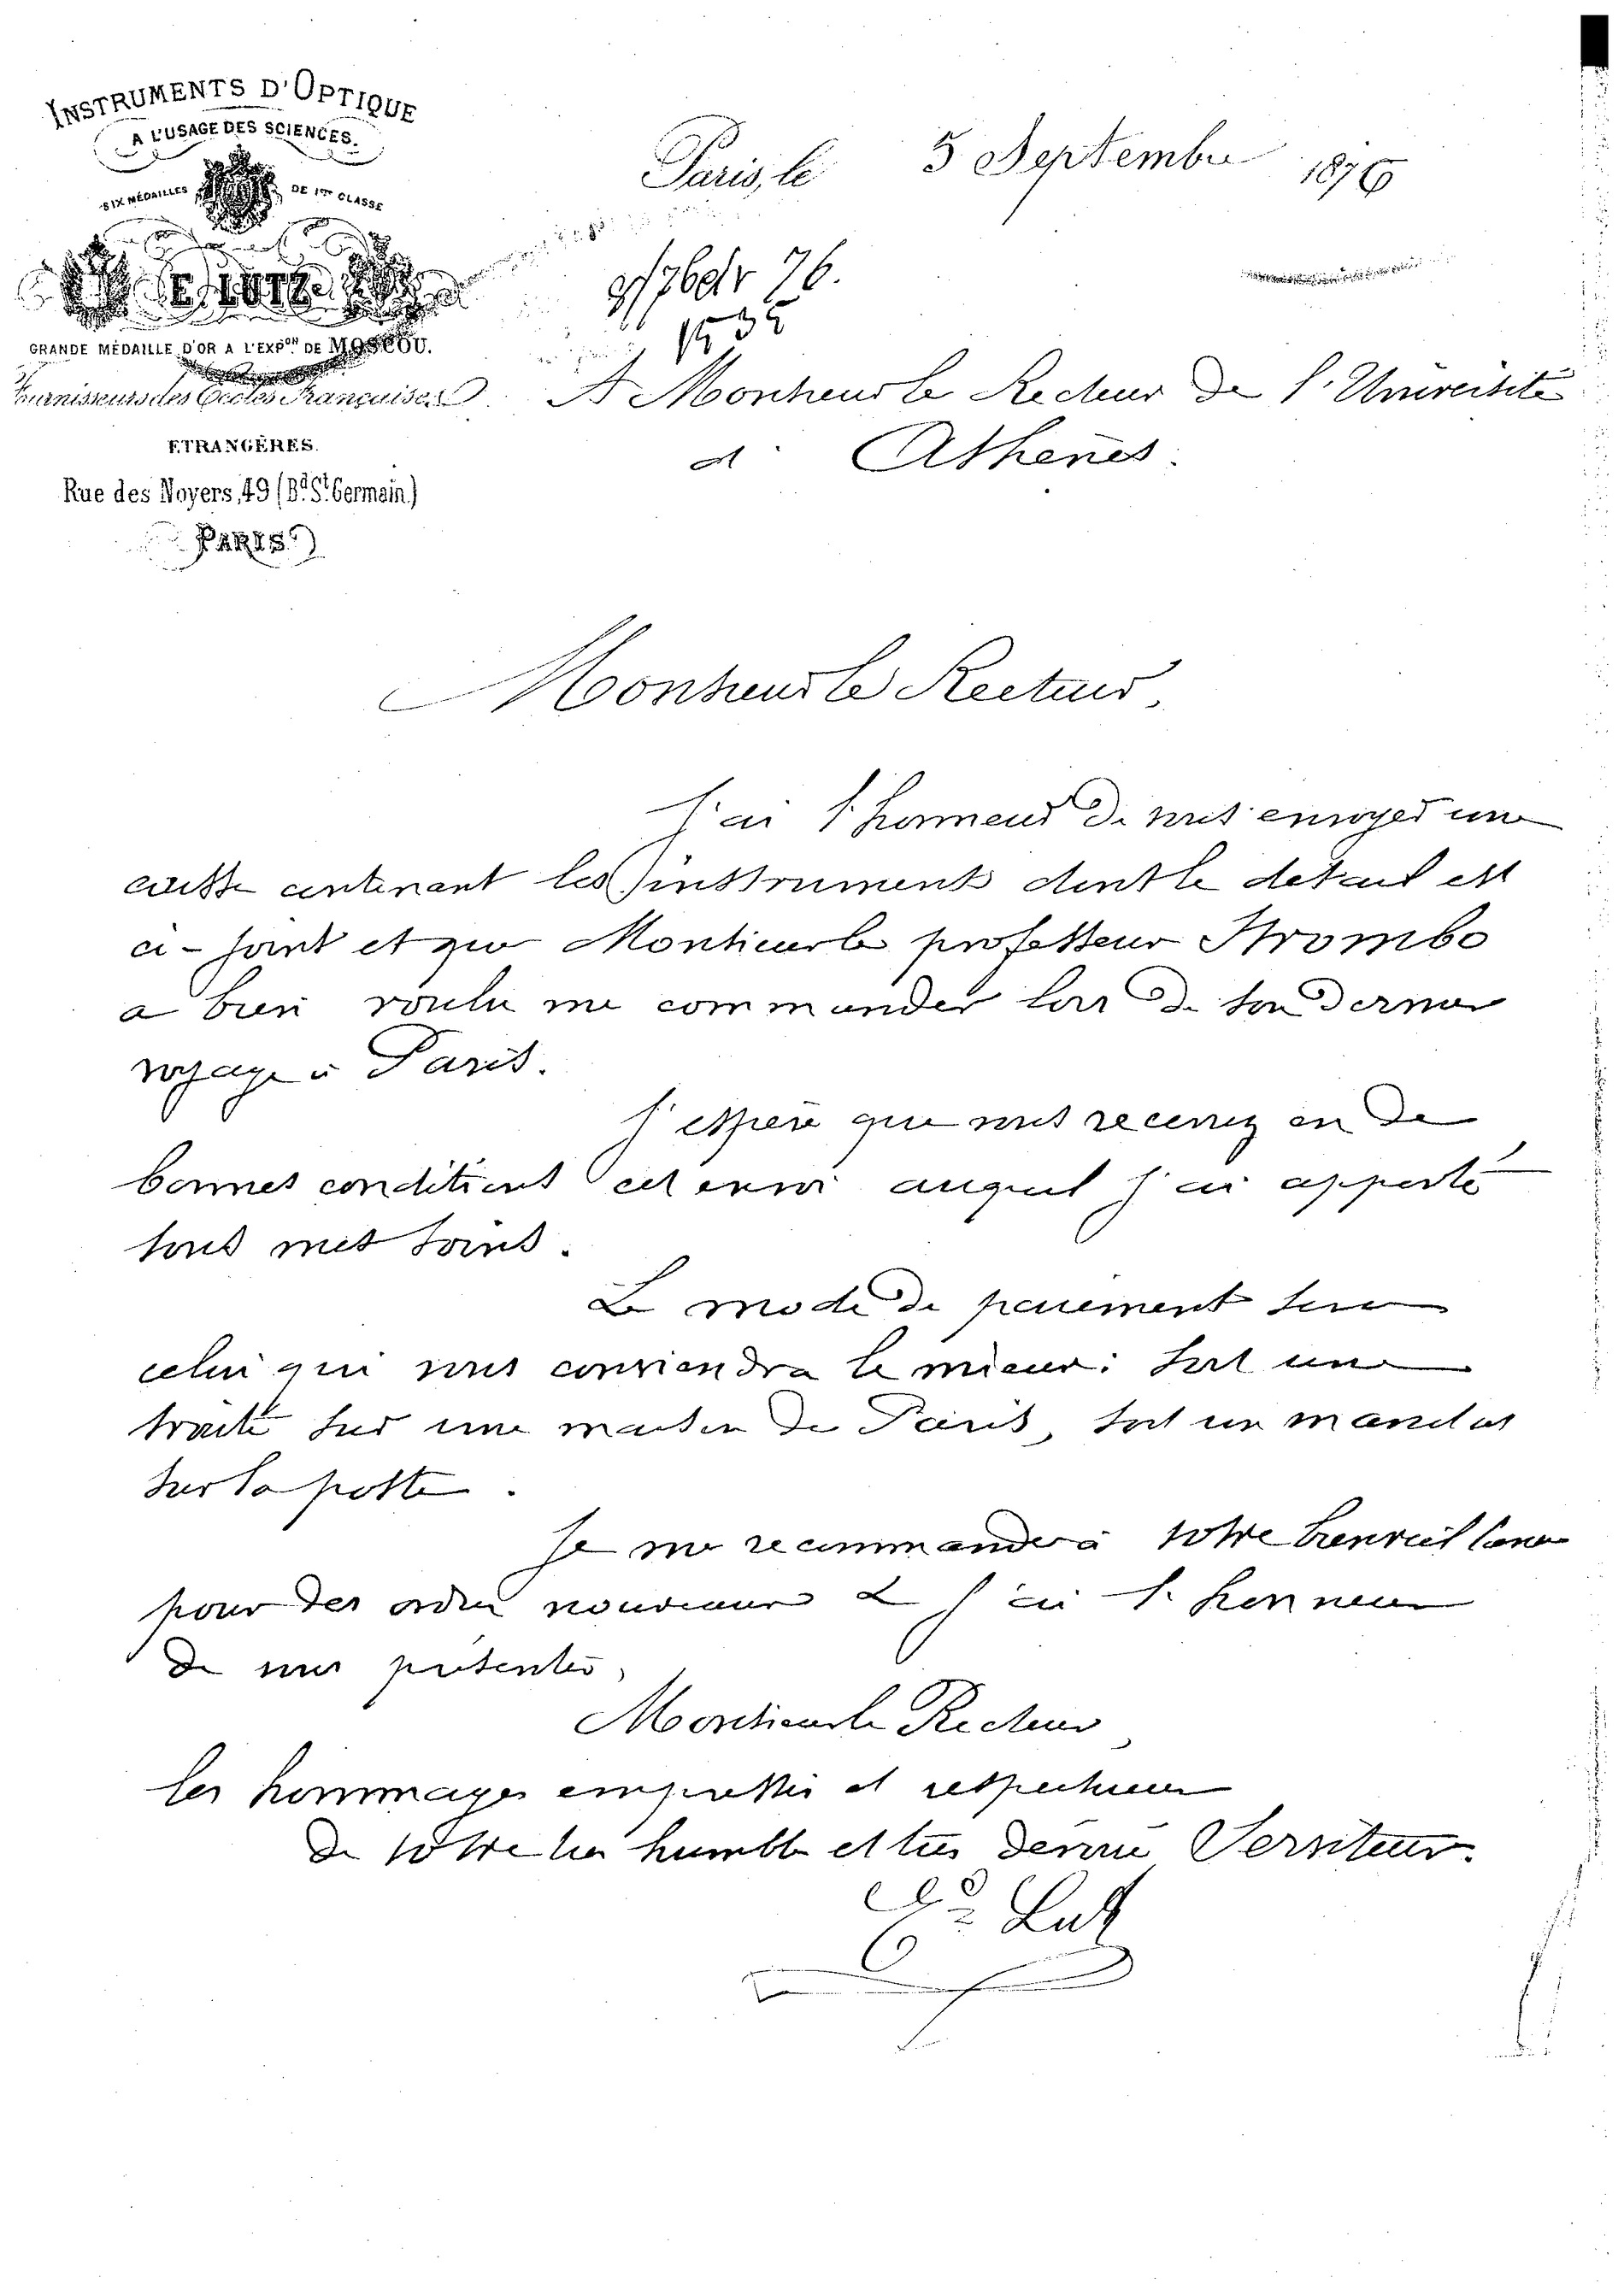 INSTRUMENTS D'OPTIQUE
A L'USAGE DES SCIENCES.
SIX MÉDAILLES DE 1re CLASSE
E. LUTZ
GRANDE MÉDAILLE D'OR A L'EXPon DE MOSCOU.
Fournisseurs des Ecoles Françaises
ETRANGÈRES.
Rue des Noyers, 49 (Bd St Germain)
PARIS
Paris, le 5 Septembre 1876
9/7bdr 76.
1535
A Monsieur le Recteur de l'Université
d'Athènes.
Monsieur le Recteur,
J'ai l'honneur de vous envoyer une
caisse contenant les instruments dont le détail est
ci-joint et que Monsieur le professeur Strombo
a bien voulu me commander lors de son dernier
voyage à Paris.
J'espère que vous recevrez en de
bonnes conditions cet envoi auquel j'ai apporté
tous mes soins.
Le mode de paiement sera
celui qui vous conviendra le mieux: soit une
traite sur une maison de Paris, soit un mandat
sur la poste.
Je me recommande à votre bienveillance
pour des ordres nouveaux & j'ai l'honneur
de vous présenter,
Monsieur le Recteur,
les hommages empressés et respectueux
de votre très humble et très dévoué Serviteur.
Ed. Lutz